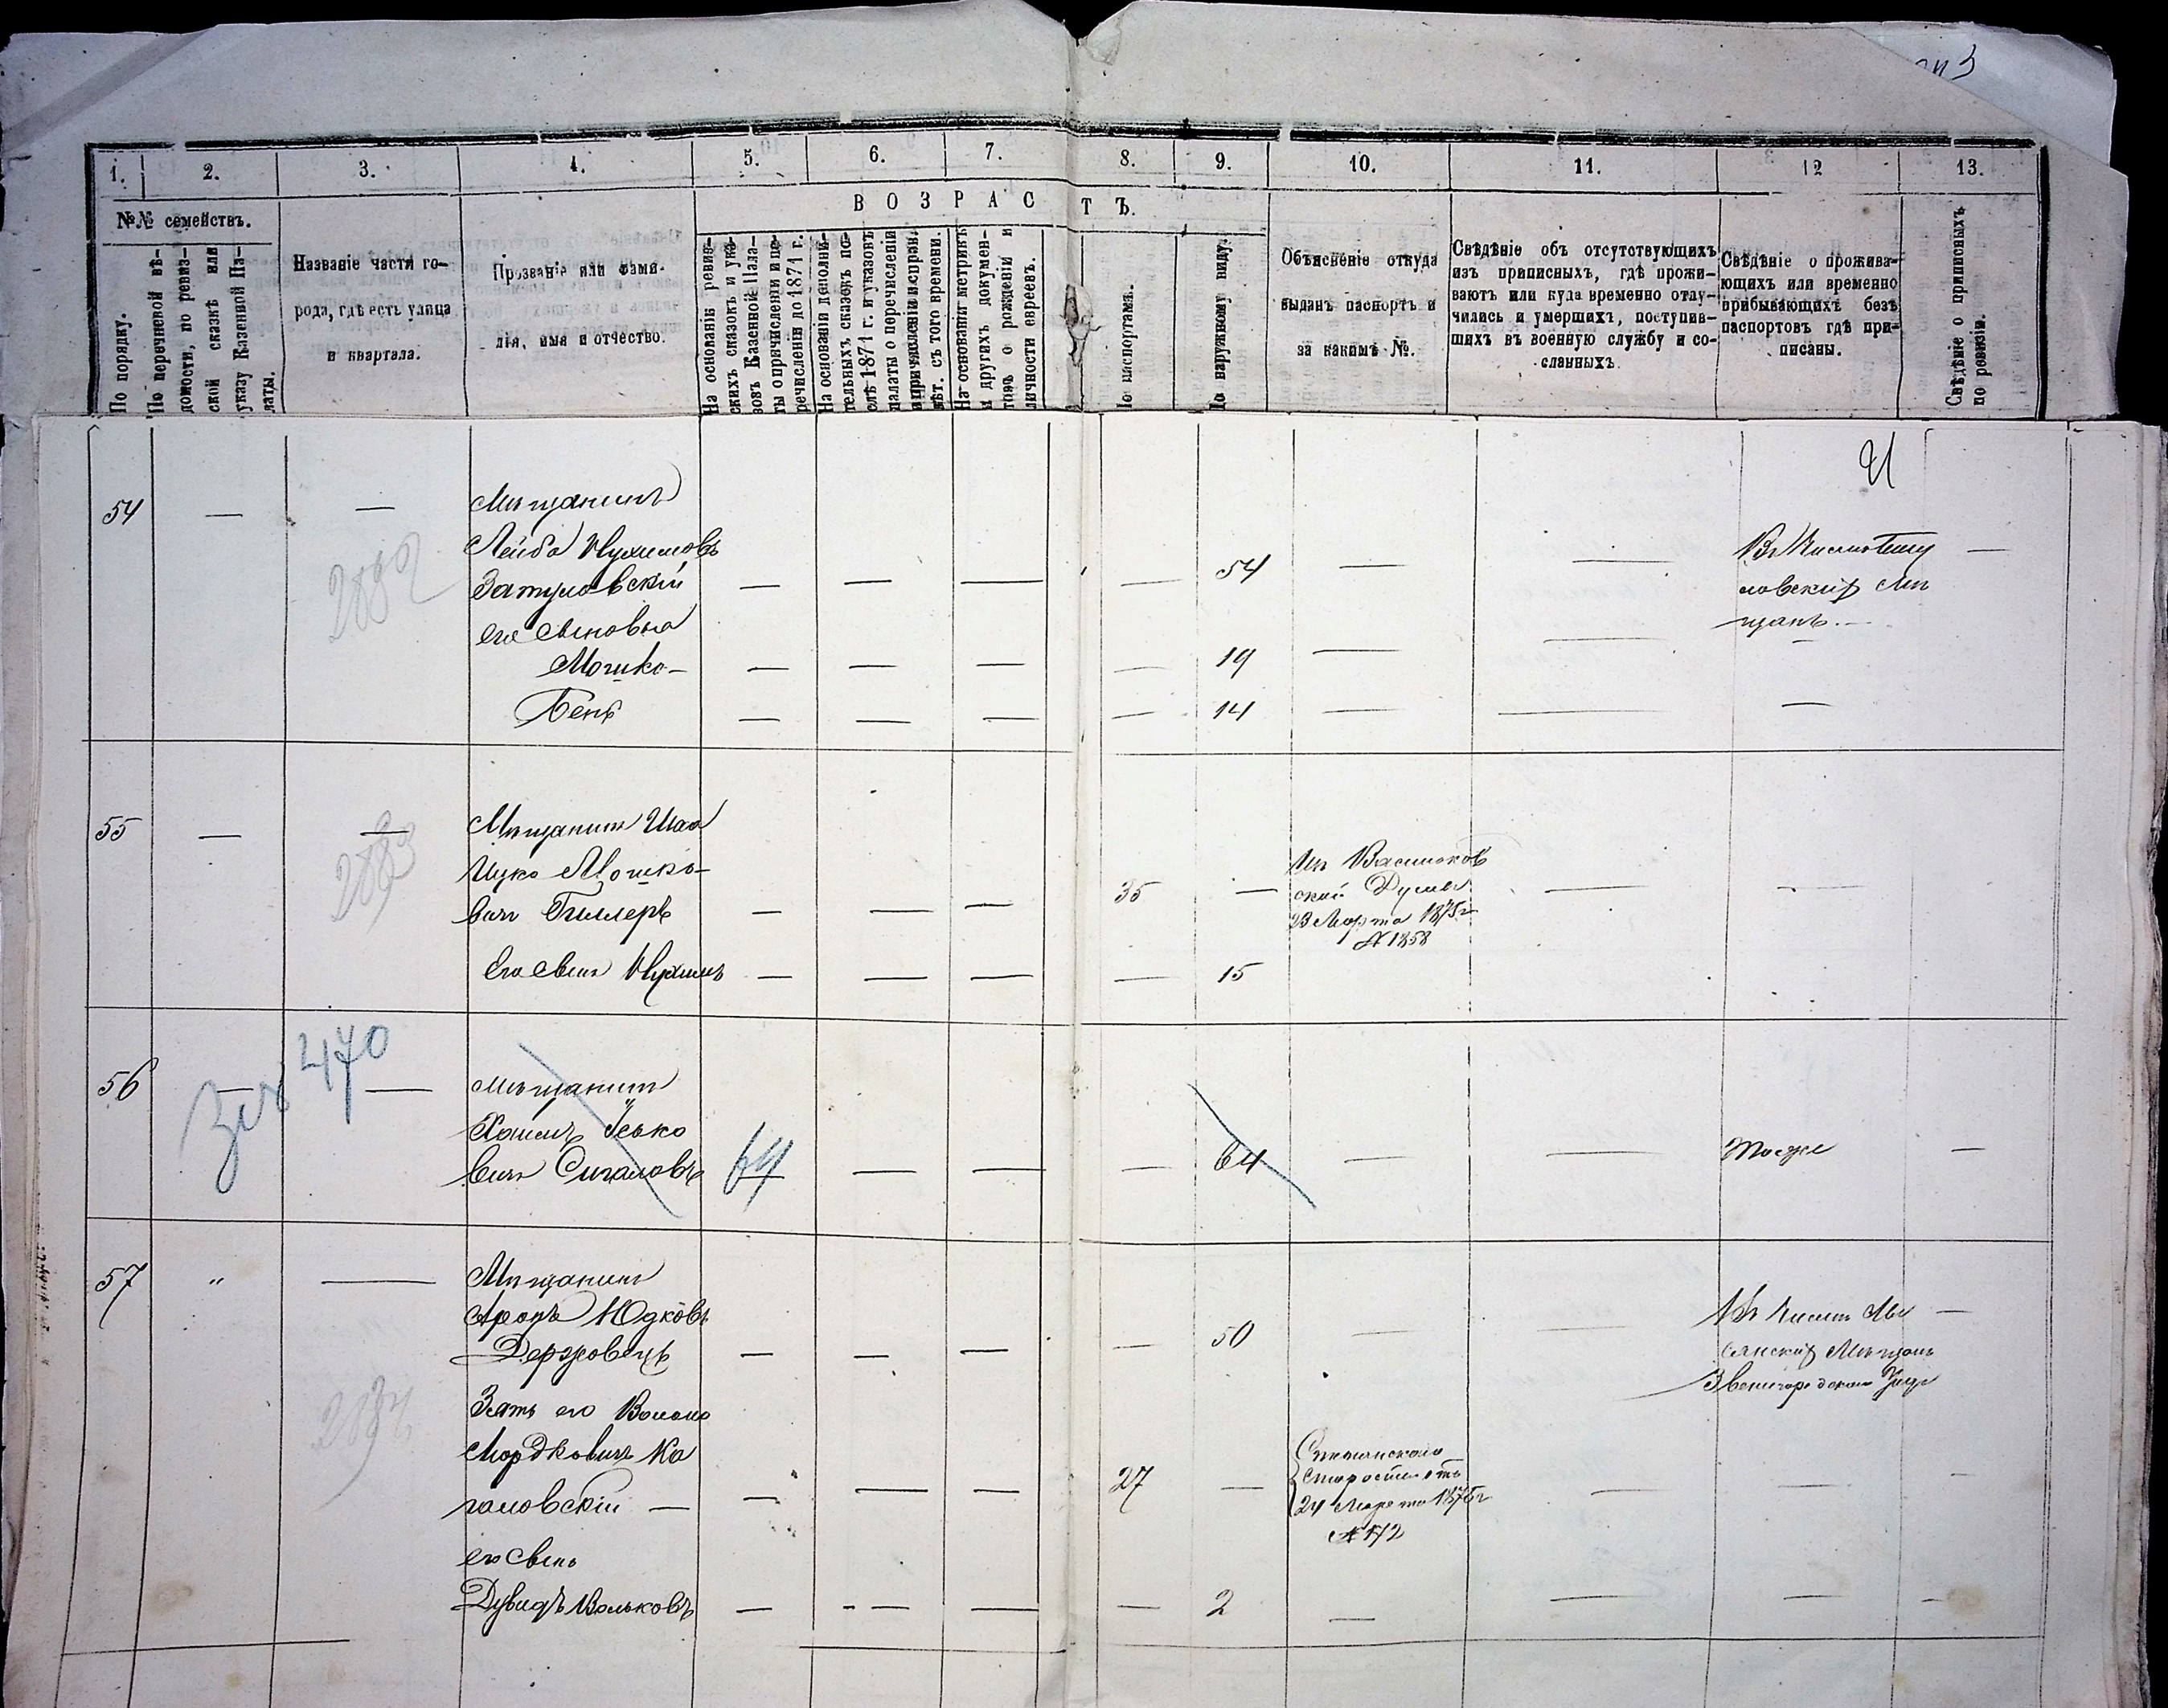 1. 2. 3. 4. 5. 6. 7. 8. 9. 10. 11. 12 13.
№№ семействъ.
ВОЗРАСТЪ.
По порядку.
По перечневой вѣ-
домости, по ревиз-
ской сказкѣ или
указу Казенной Па-
латы.
Названіе части го-
рода, гдѣ есть улица
и квартала.
Прозваніе или фами-
лія, имя и отчество.
На основаніи ревиз-
скихъ сказокъ и ука-
зовъ Казенной Пала-
ты о причисленіи и пе-
речисленіи до 1871 г.
На основаніи дополни-
тельныхъ сказокъ по-
слѣ 1871 г. и указовъ
палаты о перечисленіи
и причисленіи и исправ.
лѣт. съ того времени.
На основаніи метрикъ
и другихъ докумен-
товъ о рожденіи и
личности евреевъ.
По паспортамъ.
По наружному виду.
Объясненіе откуда
выданъ паспортъ и
за какимъ №.
Свѣдѣніе объ отсутствующихъ
изъ приписныхъ, гдѣ прожи-
ваютъ или куда временно отлу-
чились и умершихъ, поступив-
шихъ въ военную службу и со-
сланныхъ
Свѣдѣніе о прожива-
ющихъ или временно
прибывающихъ безъ
паспортовъ гдѣ при-
писаны.
Свѣдѣніе о приписныхъ
по ревизіи.
54 — —
Мѣщанинъ
Лейба Нухимовъ
Затуловскій — — — — 54 — —
его сыновья
Мошко — — — — — 19 — —
Бенѣ — — — — 14 — — —
мѣ
щанъ. —
55 — —
2883
Мѣщанинъ Шая
Ицко Мошко-
вичъ Гиллеръ — — — 35 — — —
Его сынъ Нухимъ — — — — 15
Изъ Васильков
ской Думы
23 Марта 1875 г
№ 1858
56 — —
470
Мѣщанинъ
Хаимъ Іосько
вичъ Сигаловъ 64 — — — 64 — — тоже —
57 " —
Мѣщанинъ
Аронъ Юдковъ
Держовецъ — — — — 50 — — —
Зять его Волько
Мордковичъ Ка
галовскій — — — — 27 — — — —
его сынъ
Дувидъ Вольковъ — — — — — 2 — — — —
Мѣщанъ
Звенигородскаго Уѣзда
24 Марта 1875 г
№ 172